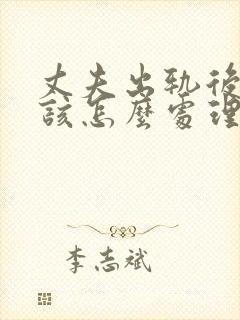 丈夫出轨後
該怎麼處理
李志斌